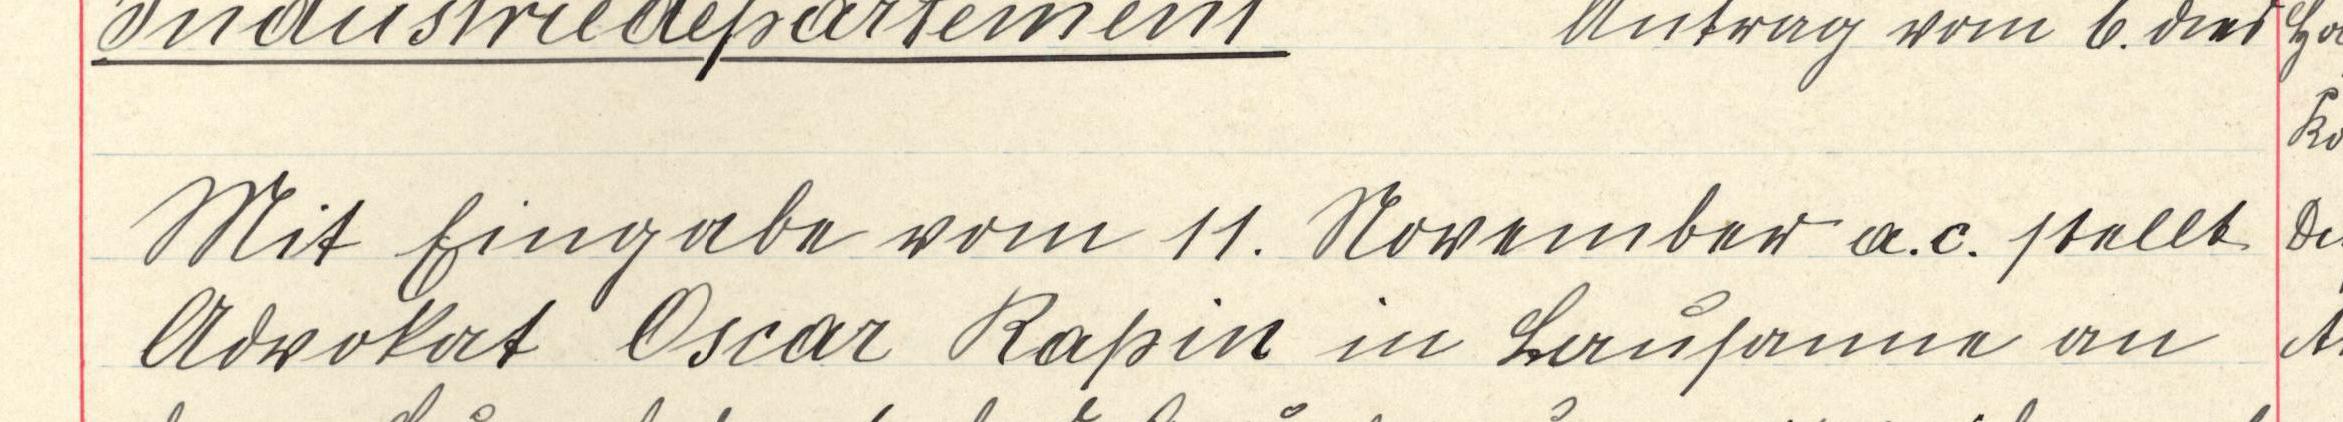 Industriedepartement Antrag vom 6. dies
Mit Eingabe vom 11. November a.c. stellt
Advokat Oscar Rapin in Lausanne an